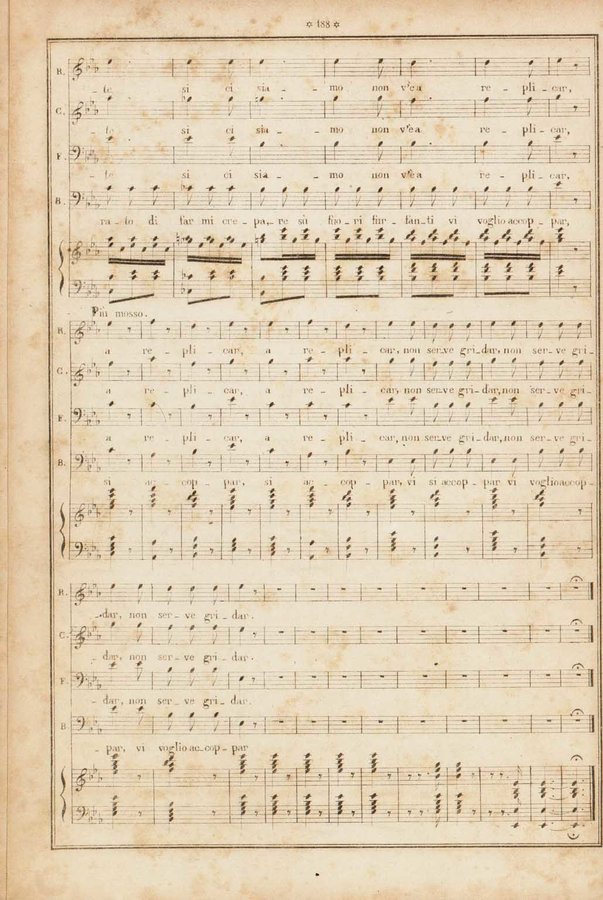 188
R. te si ci sia - mo non v'è a re - pli - car,
C. te si ci sia - mo non v'è a re - pli - car,
F. - te si ci sia - mo non v'è a re - pli - car,
B. ra - to di far mi cre - pa, re sù fuo - ri fur - fan - ti vi voglio accop - par,
Più mosso.
R. a re - pli - car, a re - pli - car, non ser - ve gri - dar, non ser - ve gri -
C. a re - pli - car, a re - pli - car, non ser - ve gri - dar, non ser - ve gri -
F. a re - pli - car, a re - pli - car, non ser - ve gri - dar, non ser - ve gri -
B. si ac - cop - par, si ac - cop - par, vi si accop - par vi voglio accop -
R. - dar, non ser - ve gri - dar.
C. - dar, non ser - ve gri - dar.
F. - dar, non ser - ve gri - dar.
B. - par, vi voglio ac - cop - par